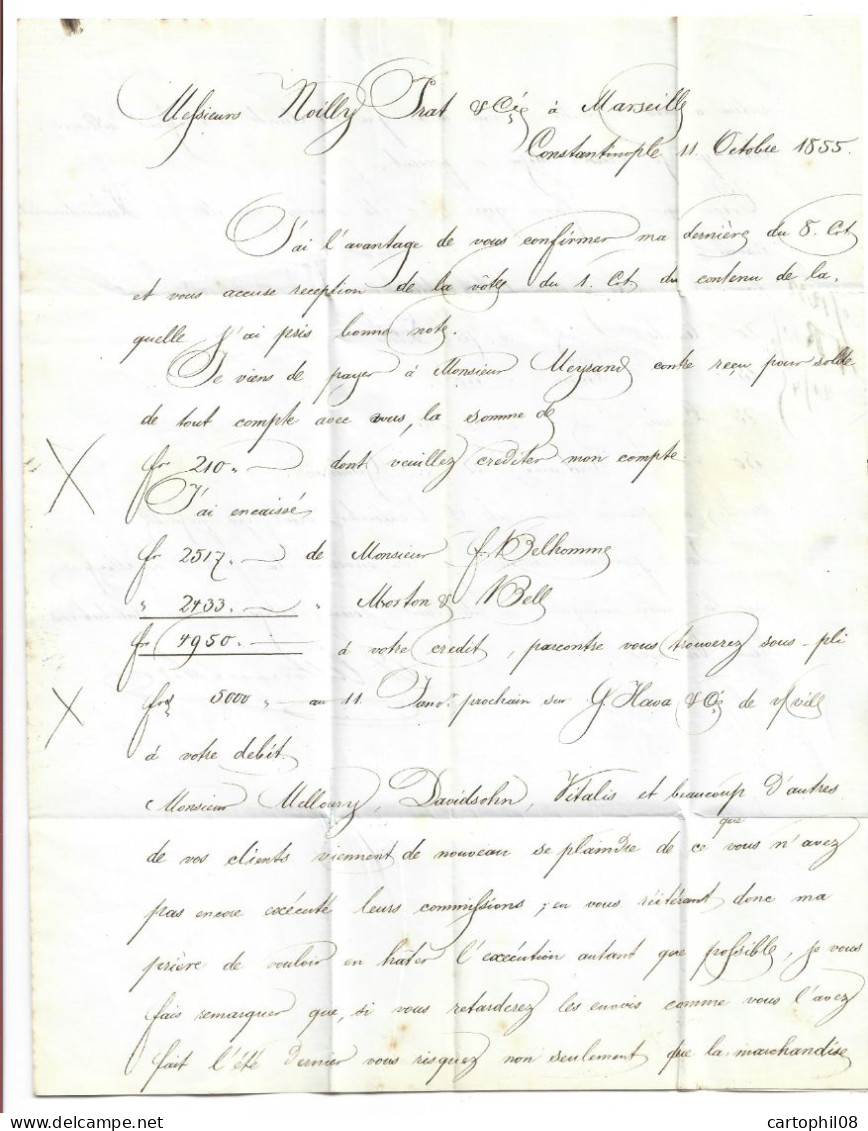 Messieurs Noilly Prat & Cie à Marseille
Constantinople 11 Octobre 1855.
J'ai l'avantage de vous confirmer ma dernière du 8. Crt
et vous accuse reception de la vôtre du 1. Ct. du contenu de la
quelle j'ai pris bonne note.
Je viens de payer à Monsieur Meyrand contre reçu pour solde
de tout compte avec vous, la somme de
fr 210 „ dont veuillez crediter mon compte.
J'ai encaissé
fr 2517. de Monsieur f. Belhomme
„ 2433. „ Morton & Bell
fr 4950. à votre credit, parcontre vous trouverez sous-pli
frs 5000 „ au 11. Janvr. prochain sur G. Hava & Cie de v/ ville
à votre debit.
Monsieur Melloury, Davidsohn, Vitalis et beaucoup d'autres
de vos clients viennent de nouveau se plaindre de ce que vous n'avez
pas encore exécuté leurs commissions; en vous réitérant donc ma
prière de vouloir en hâter l'exécution autant que possible, je vous
fais remarquer que, si vous retarderez les envois comme vous l'avez
fait l'été dernier vous risquez non seulement que la marchandise
cartophil08